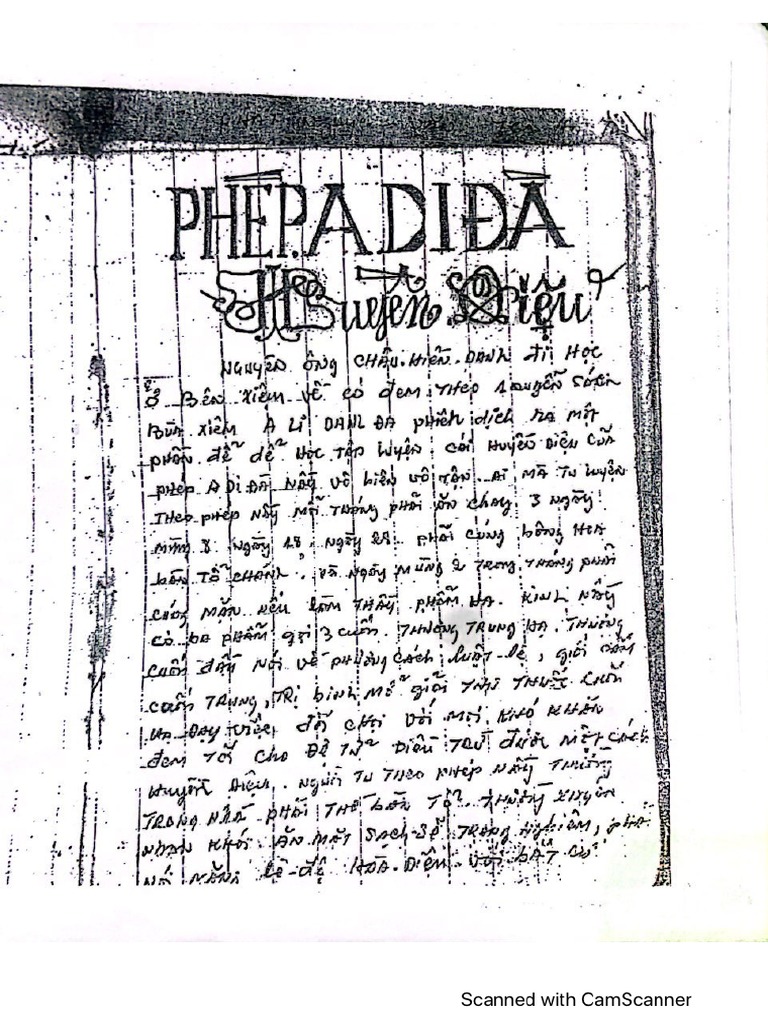 PHÉP.A DI ĐÀ
Huyền.Diệu
NGUYÊN ÔNG CHÂU.HIỂN.DANH đi HỌC
Ở BÊN XIÊM VỀ CÓ đem THEO 1 QUYỂN SÁCH
XIÊM A LI DANH ĐA phiên dịch RA MỘT
PHẦN để dễ HỌC TẬP luyện. Cái Huyền Diệu CỦA
phép A Di ĐÀ NẦY VÔ biên VÔ TẬN. Ai MÀ TU luyện
THEO phép NẦY MỖI THÁNG phải ĂN chay 3 NGÀY
mùng 8 NGÀY 18, NGÀY 28 phải cúng bông HOA
bàn TỔ CHÁNH. VÀ NGÀY MÙNG 2 TRONG THÁNG phải
cúng MẶN NẾU LÀM THẦY phẩm HẠ. KINH NẦY
CÓ BA PHẨM gọi 3 cuốn. THƯỢNG TRUNG HẠ. THƯỢNG
cuốn đầu Nói VỀ PHƯƠNG CÁCH luật lệ, giới cấm
cuốn TRUNG, TRỊ bịnh MỔ giải THI THUỐC cuốn
HẠ DẠY việc đối CHỌI VỚI MỌI KHÓ KHĂN
đem TỚI CHO ĐỆ TỬ Điều TRỊ được MỘT CÁCH
Huyền Diệu. NGƯỜI TU THEO phép NẦY THƯỜNG
TRONG NHÀ phải THỜ bàn TỔ THƯỜNG XUYÊN
NHANG KHÓI ĂN MẶC SẠCH SẼ TRANG NGHIÊM, phải
Nói NĂNG lễ độ HÒA Diệu VỚI BẤT CỨ
Scanned with CamScanner